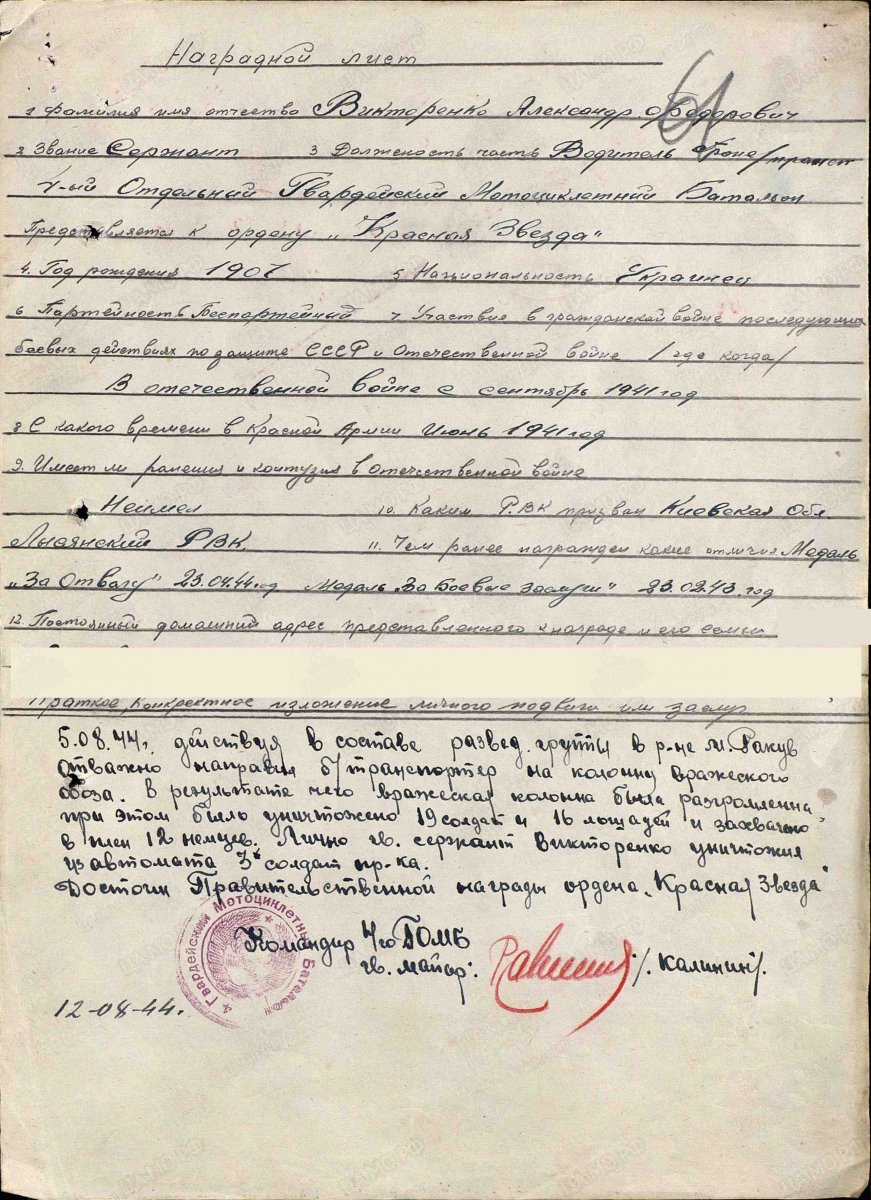 Наградной лист
61
1 Фамилия имя отчество Викторенко Александр Федорович
2 Звание Сержант 3 Должность часть Водитель броне/трансп
4-ый Отдельний Гвардейский Мотоциклетний Батальон
Представляется к ордену „Красная Звезда"
4. Год рождения 1907 5 Национальность Украинец
6 Партейность Беспартейный 7 Участие в гражданской войне последующих
боевых действиях по защите СССР и Отечественной войне /где когда/
В отечественной войне с сентябрь 1941 год
8 С какого времени в Красной Армии Июнь 1941 год
9. Имеет ли ранения и контузия в отечественной войне
Неимел 10. Каким Р.ВК призван Киевская Обл
Лысянский РВК. 11. Чем ранее награжден какие отличия Медаль
„За Отвагу" 23.04.44.год Медаль „За Боевые заслуги" 23.02.43. год
12 Постоянный домашний адрес представленного к награде и его семьи
Краткое, конкретное изложение личного подвига или заслуг
5.08.44г. действуя в составе развед. групы в р-не м. Ракув
отважно направил б/транспортер на колонну вражеского
обоза. В результате чего вражеская колонна была разгромленна
при этом было уничтожено 19 солдат и 16 лошадей и захвачено
в плен 12 немцев. Лично гв. сержант Викторенко уничтожил
из автомата 3х солдат пр-ка.
Достоин Правительственной награды ордена „Красная Звезда"
4 Гвардейский Мотоциклетный Батальон
Командир 4го ГОМБ
гв. майор: /. Калинин/.
12-08-44г.